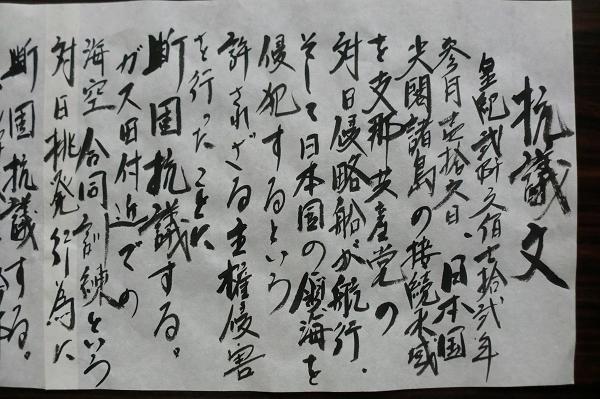 抗議文
皇紀弐阡六佰七拾弐年
参月壱拾六日、日本国
尖閣諸島の接続水域
を支那共産党の
対日侵略船が航行.
そして日本国の領海を
侵犯するという
許されざる主権侵害
を行ったことに
断固抗議する。
ガス田付近での
海空合同訓練という
対日挑発行為に
断固抗議する。